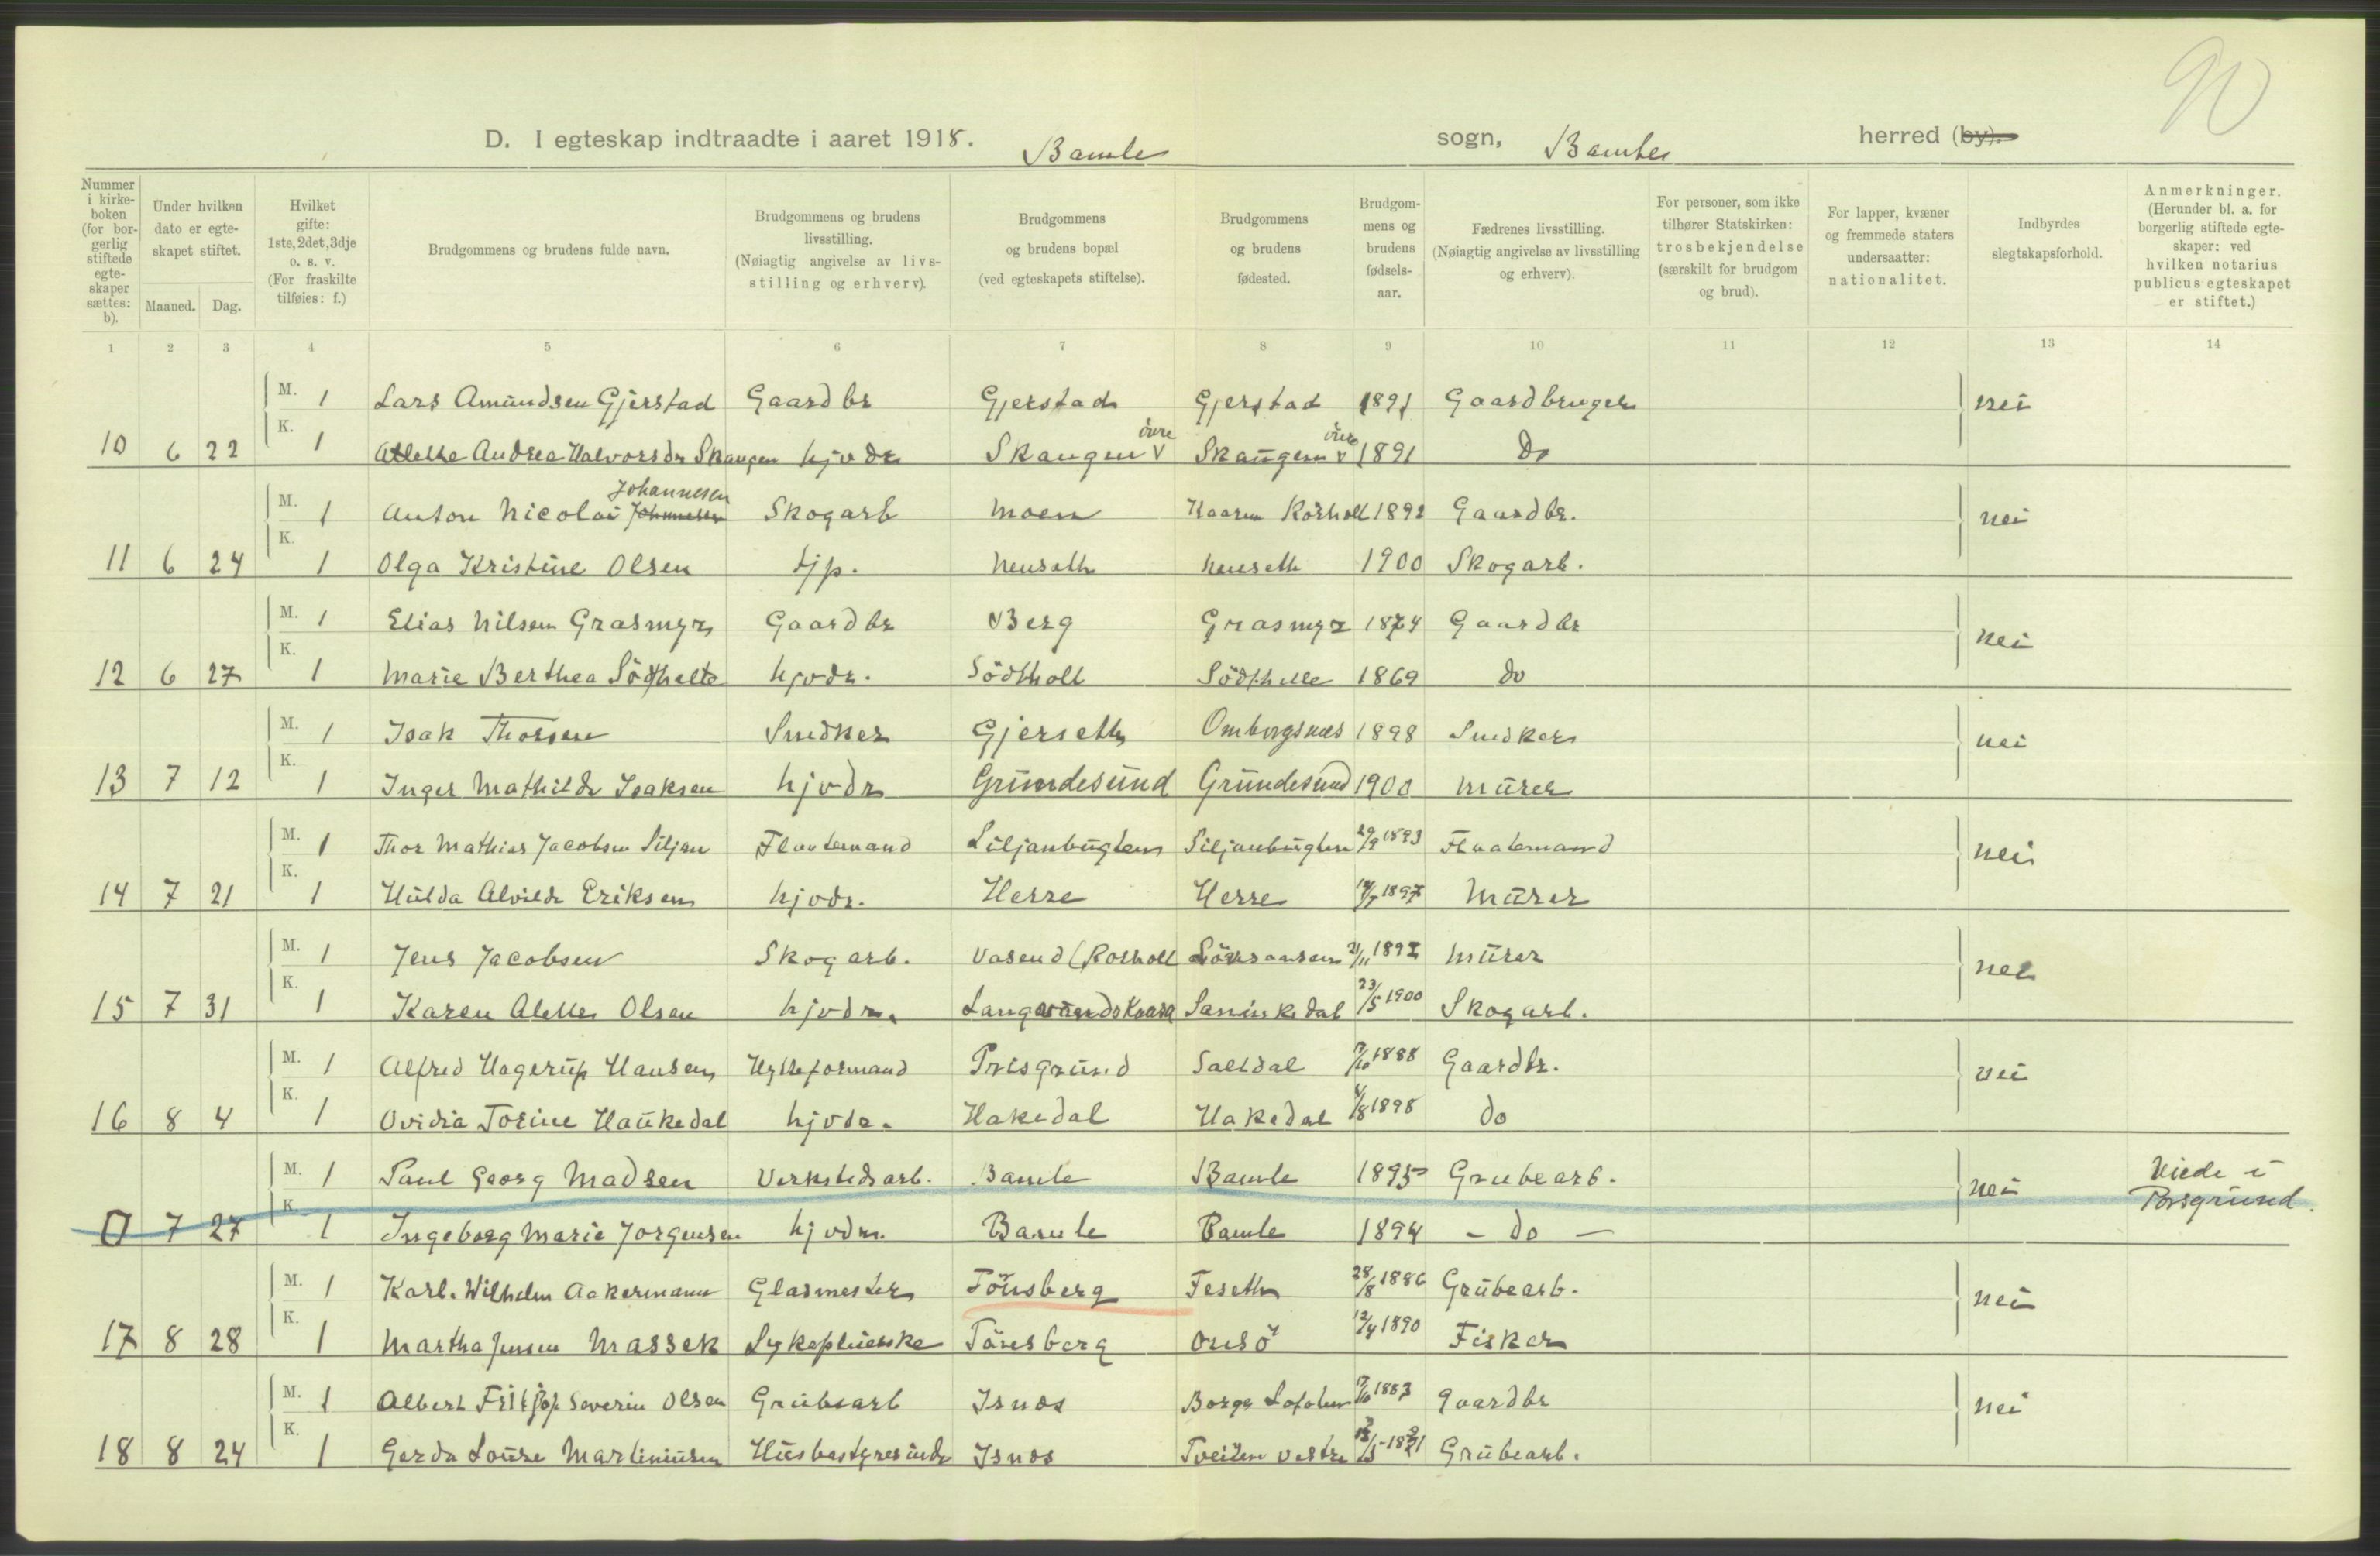 90
D. I egteskap indtraadte i aaret 1918. Bamle sogn, Bamble herred (by).
Nummer i kirkeboken (for borgerlig stiftede egteskaper sættes: b).
Under hvilken dato er egteskapet stiftet.
Maaned. Dag.
Hvilket gifte: 1ste, 2det, 3dje o. s. v. (For fraskilte tilføies: f.)
Brudgommens og brudens fulde navn.
Brudgommens og brudens livsstilling. (Nøiagtig angivelse av livsstilling og erhverv).
Brudgommens og brudens bopæl (ved egteskapets stiftelse).
Brudgommens og brudens fødested.
Brudgommens og brudens fødselsaar.
Fædrenes livsstilling. (Nøiagtig angivelse av livsstilling og erhverv).
For personer, som ikke tilhører Statskirken: trosbekjendelse (særskilt for brudgom og brud).
For lapper, kvæner og fremmede staters undersaatter: nationalitet.
Indbyrdes slegtskapsforhold.
Anmerkninger. (Herunder bl. a. for borgerlig stiftede egteskaper: ved hvilken notarius publicus egteskapet er stiftet.)
1 2 3 4 5 6 7 8 9 10 11 12 13 14
M. 1 Lars Amundsen Gjerstad Gaardbr Gjerstad Gjerstad 1891 Gaardbruger nei
10 6 22 K. 1 Andrea Halvorsdr Skaugen hjvdr Skaugen øvre Skaugen øvre 1891 Do
M. 1 Anton Nicolai Johannesen Skogarb Moen Kaasen Rørholt 1892 Gaardbr. nei
11 6 24 K. 1 Olga Kristine Olsen tjp. Neuseth Neuseth 1900 Skogarb.
M. 1 Elias Nilsen Grasmyr Gaardbr Berg Grasmyr 1874 Gaardbr nei
12 6 27 K. 1 Marie Berthea Södtholte hjvdr. Södtholt Södtholte 1869 do
M. 1 Isak Thorsen Snedker Gjerseth Omborgsnes 1898 Snedker nei
13 7 12 K. 1 Inger Mathilde Isaksen hjvdr Grundesund Grundesund 1900 Murer
M. 1 Thor Mathias Jacobsen Siljan Fløutemand Siljanbugten Siljanbugten 29/9 1893 Flaatemand nei
14 7 21 K. 1 Hulda Alvilde Eriksen hjvdr. Herre Herre 14/7 1897 Murer
M. 1 Jens Jacobsen Skogarb. Vasend (Rorholt 21/11 1892 Murer nei
15 7 31 K. 1 Karen Alette Olsen hjvdr. Sannikedal 23/5 1900 Skogarb.
M. 1 Alfred Hagerup Hansen Hytteformand Prisgrund Saltdal 7/10 1888 Gaardbr. nei
16 8 4 K. 1 Ovidia Torine Haukedal hjvdr. Hakedal Hakedal 4/8 1898 do
M. 1 Paul Georg Madsen Verkstedsarb. Bamle Bamle 1895 Grubearb. nei Viede i Porsgrund.
0 7 27 K. 1 Ingeborg Marie Jorgensen hjvdr. Bamle Bamle 1894 - do -
M. 1 Karl. Wilhelm Aakermann Glasmester Tönsberg Feseth 28/8 1886 Grubearb. nei
17 8 28 K. 1 Martha Jensen Massek Sykepleierske Tönsberg Onsö 12/4 1890 Fisker
M. 1 Albert Fritjof Severin Olsen Grubearb Isnes Borge Lofoten 7/10 1883 Gaardbr nei
18 8 24 K. 1 Gerda Louise Martiniusen Husbestyrerinde Isnes Tveiten vestre Grubearb.